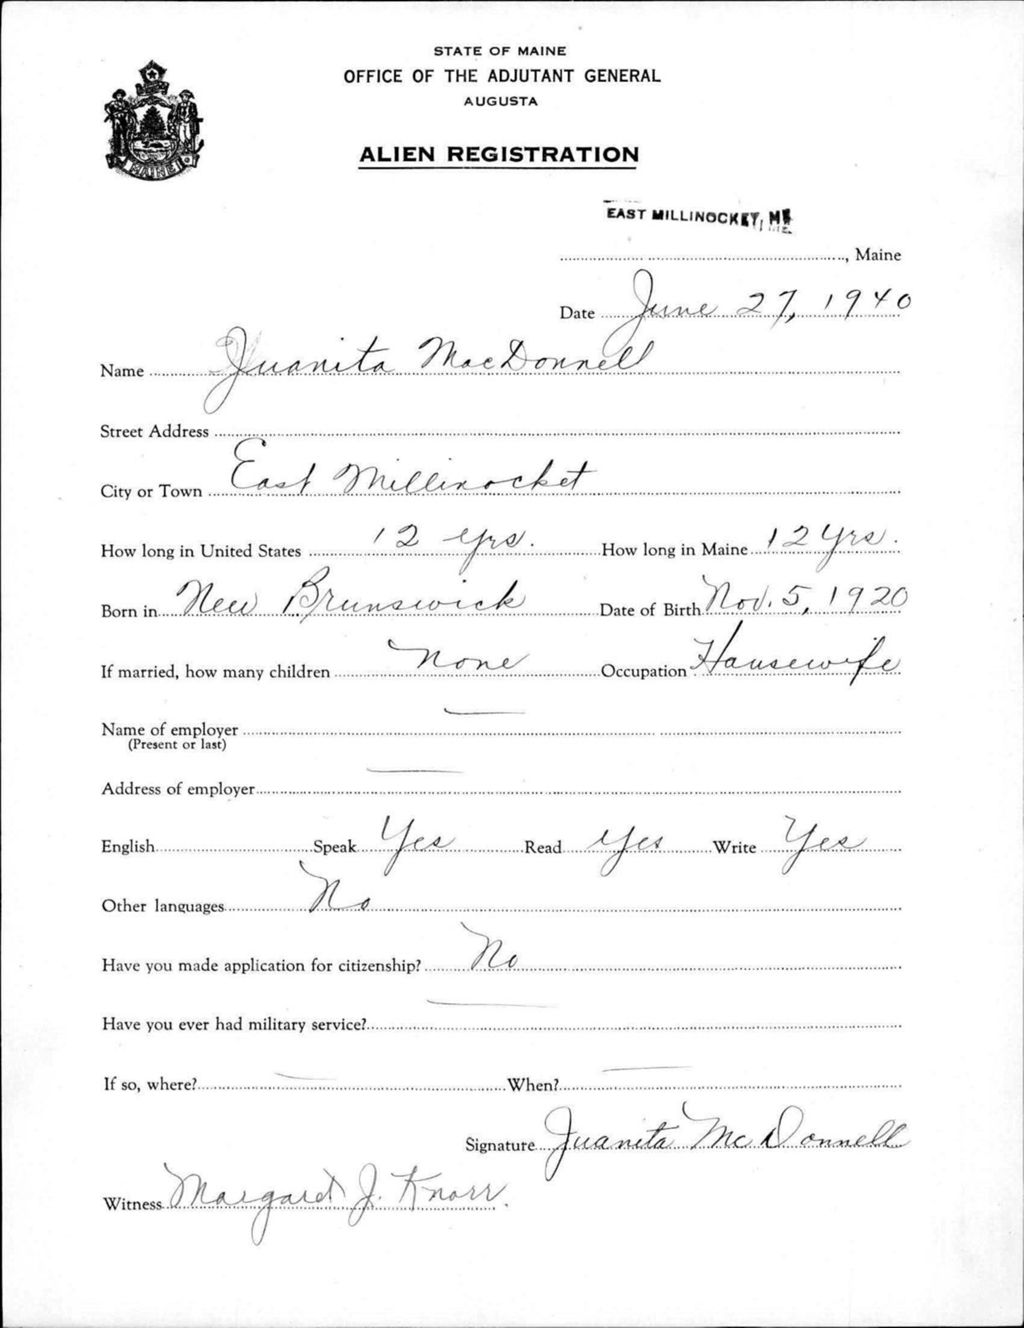 STATE OF MAINE
OFFICE OF THE ADJUTANT GENERAL
AUGUSTA
ALIEN REGISTRATION
MAINE
EAST MILLINOCKET, ME
, Maine
Date June 27, 1940
Name Juanita MacDonnell
Street Address
City or Town East Millinocket
How long in United States 12 yrs. How long in Maine 12 yrs.
Born in New Brunswick Date of Birth Nov. 5, 1920
If married, how many children None Occupation Housewife
Name of employer
(Present or last)
Address of employer
English Speak Yes Read Yes Write Yes
Other languages No
Have you made application for citizenship? No
Have you ever had military service?
If so, where? When?
Signature Juanita McDonnell
Witness Margaret J. Knorr.